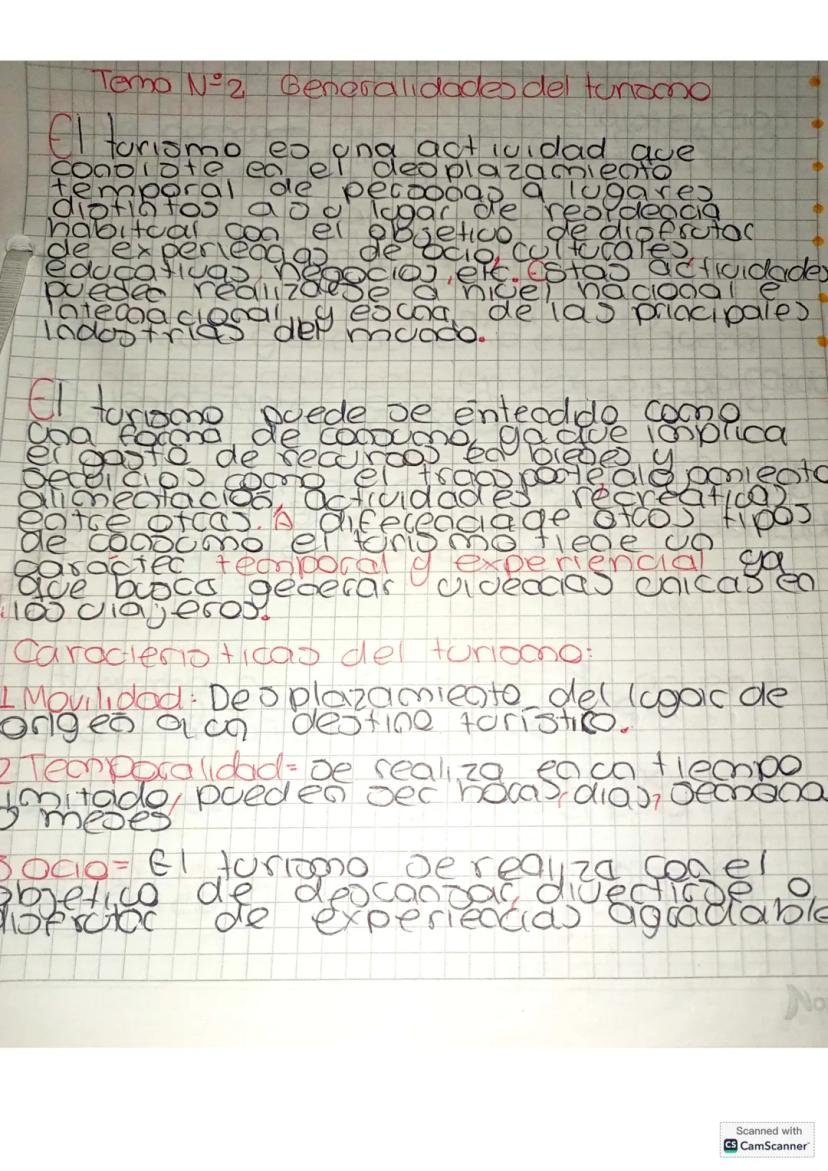 Tema Nº2 Generalidades del turismo
El turismo es una actividad que
consiste en el desplazamiento
temporal de personas a lugares
distintos a su lugar de residencia
habitual con el objetivo de disfrutar
de experiencias de ocio, culturales,
educativas, negocios, etc. Estas actividades
pueden realizarse a nivel nacional e
internacional y es una de las principales
industrias del mundo.
El turismo puede se entendido como
una forma de consumo, ya que implica
el gasto de recursos en bienes y
servicios como el transporte alojamiento
alimentación, actividades recreativas
entre otras. A diferencia de otros tipos
de consumo el turismo tiene un
carácter temporal y experiencial ya
que busca generar vivencias unicas en
los viajeros.
Caracteristicas del turismo:
1 Movilidad: Desplazamiento del lugar de
origen a un destino turístico.
2 Temporalidad= Se realiza en un tiempo
limitado, pueden ser horas, dias, semana
o meses
3 ocio= El turismo se realiza con el
objetivo de descansar, divertirse o
disfrutar de experiencias agradable
No
Scanned with
CS CamScanner